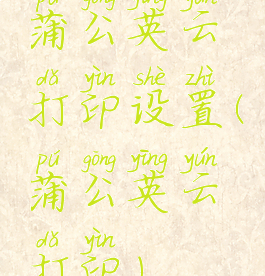 pú gōng yīng yún
蒲公英云
dǎ yìn shè zhì
打印设置(
pú gōng yīng yún
蒲公英云
dǎ yìn
打印)